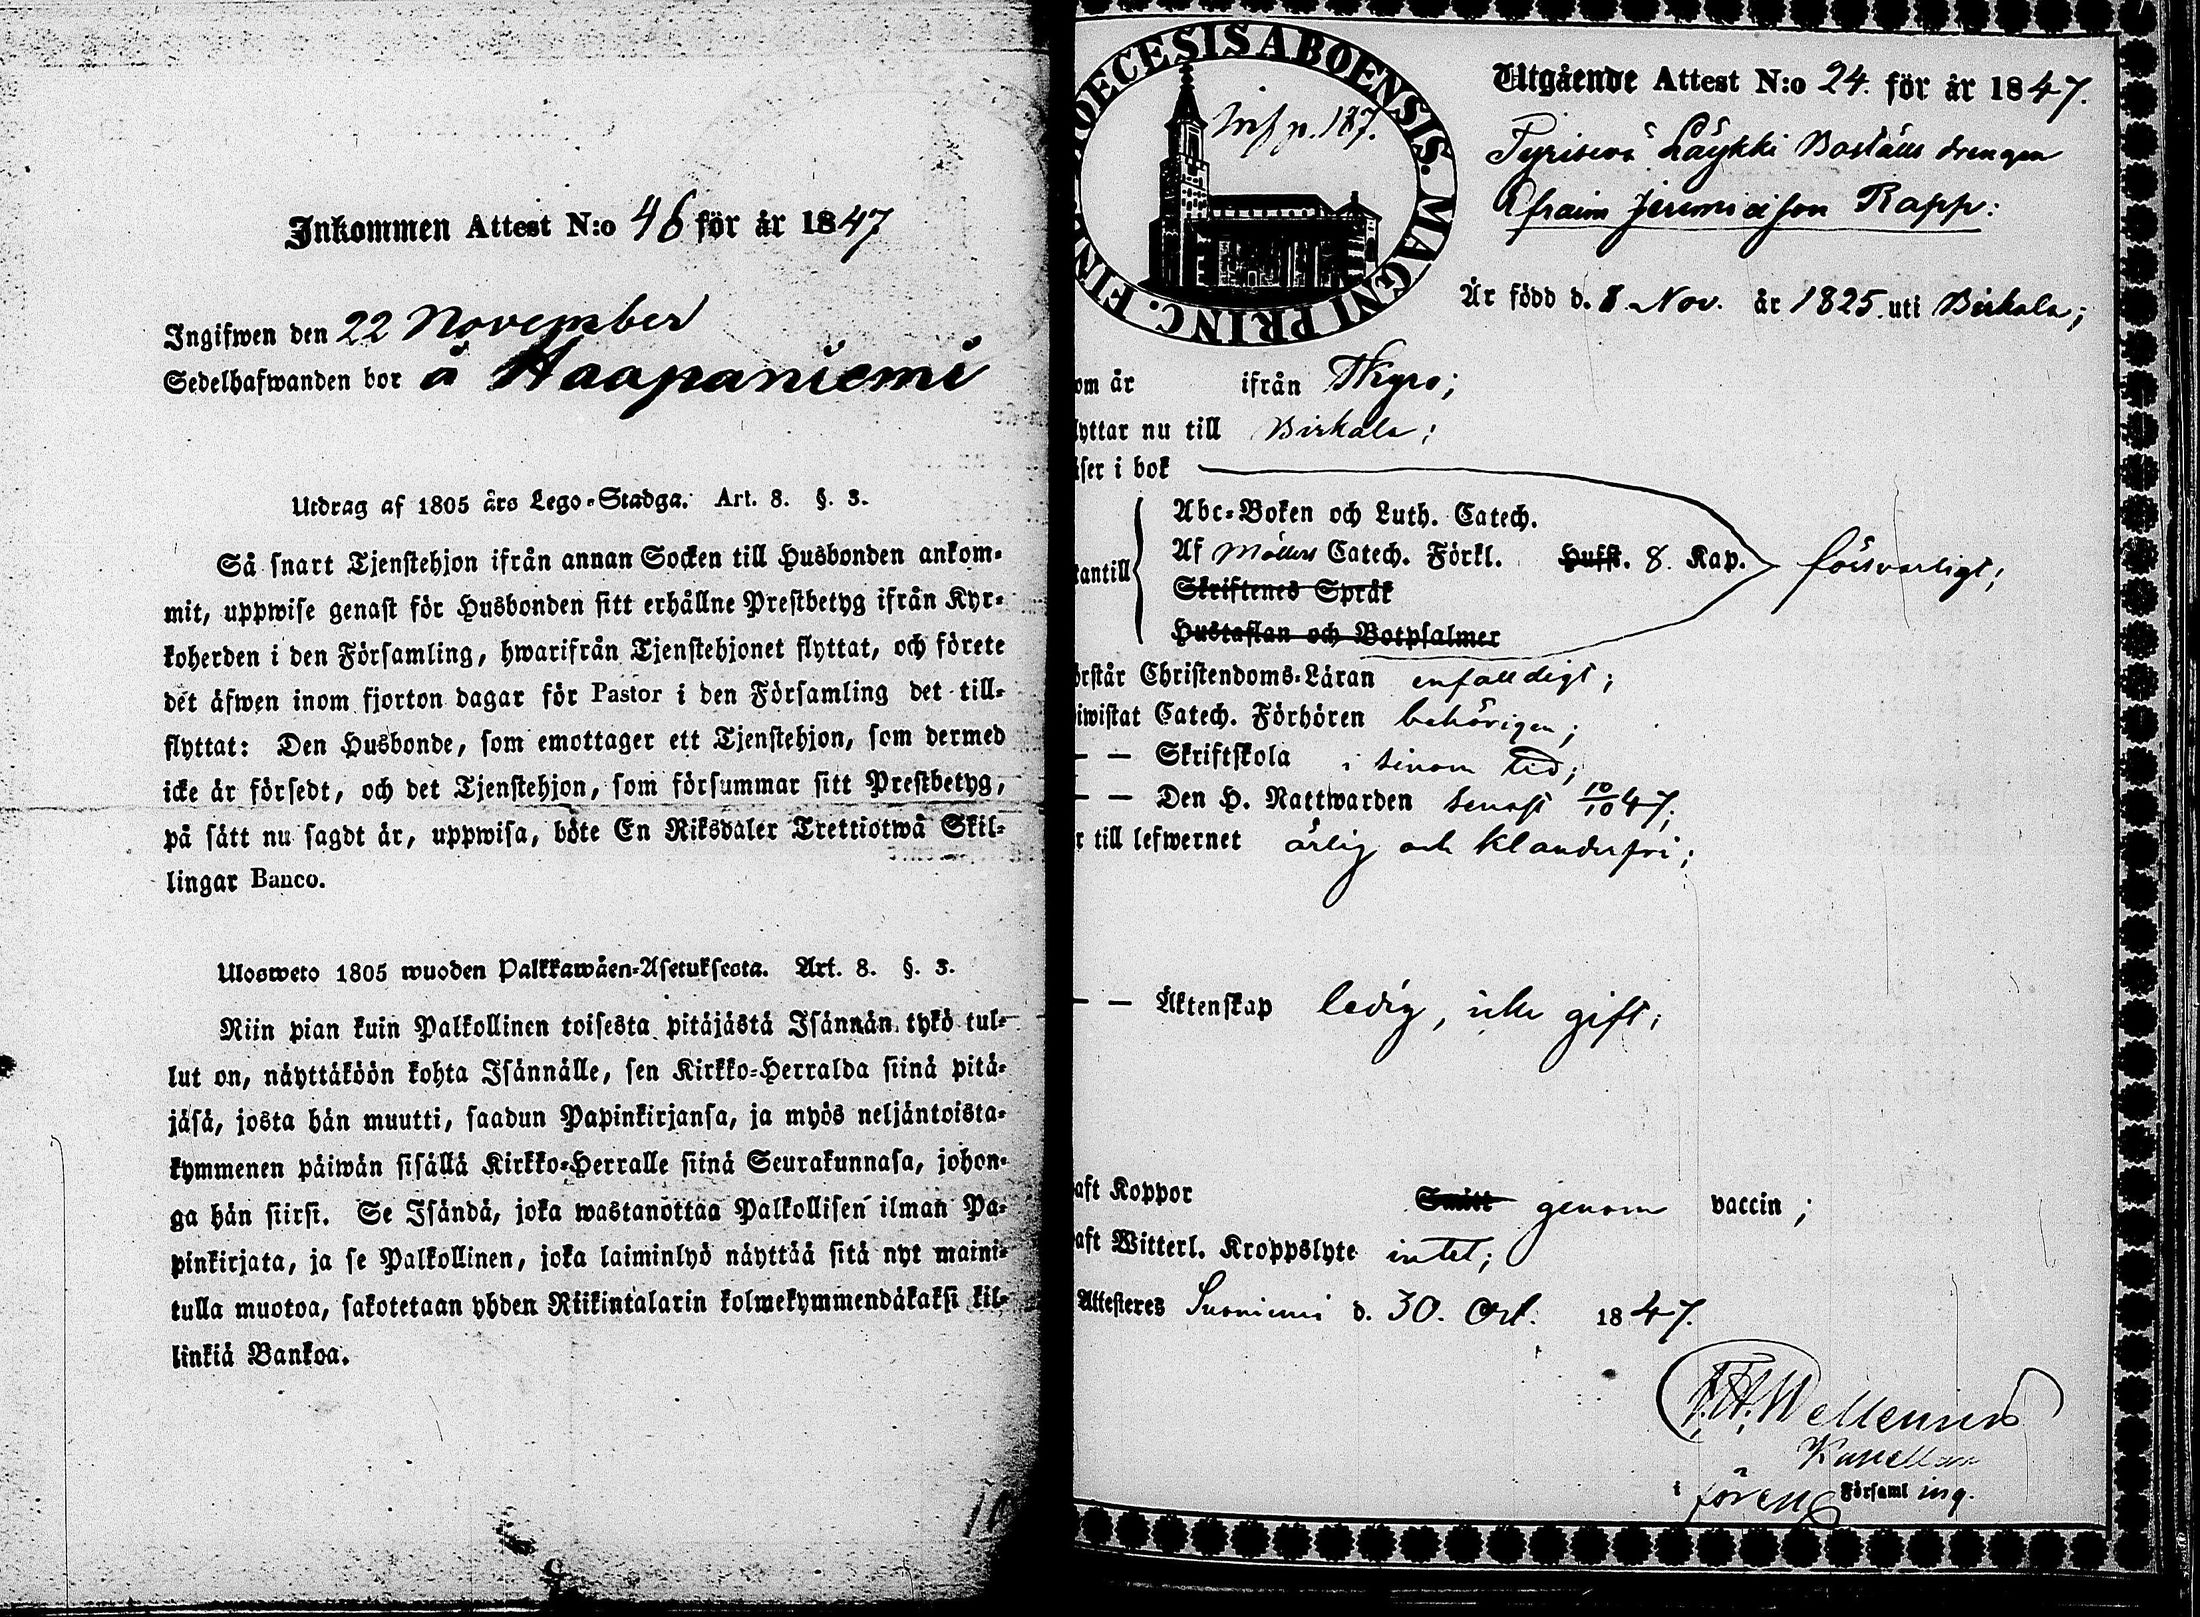 Inkommen Attest N:o 46 för år 1847
Ingifwen den 22 November
Sedelhafwanden bor å Haapaniemi
Utdrag af 1805 års Lego-Stadga. Art. 8. §. 3.
Så snart Tjenstehjon ifrån annan Socken till Husbonden ankom-
mit, uppwise genast för Husbonden sitt erhållne Prestbetyg ifrån Kyr-
koherden i den Församling, hwarifrån Tjenstehjonet flyttat, och förete
det äfwen inom fjorton dagar för Pastor i den Församling det till-
flyttat: Den Husbonde, som emottager ett Tjenstehjon, som dermed
icke är försedt, och det Tjenstehjon, som försummar sitt Prestbetyg,
på sätt nu sagdt är, uppwisa, böte En Riksdaler Trettiotwå Skil-
lingar Banco.
Ulosweto 1805 wuoden Palkkawäen-Asetuksesta. Art. 8. §. 3.
Niin pian kuin Palkollinen toisesta pitäjästä Isännän tykö tul-
lut on, näyttäköön kohta Isännälle, sen Kirkko-Herralda siinä pitä-
jäsä, josta hän muutti, saadun Papinkirjansa, ja myös neljäntoista-
kymmenen päiwän sisällä Kirkko-Herralle siinä Seurakunnasa, johon-
ga hän siirsi. Se Isändä, joka wastanottaa Palkollisen ilman Pa-
pinkirjata, ja se Palkollinen, joka laiminlyö näyttää sitä nyt maini-
tulla muotoa, sakotetaan yhden Riikintalarin kolmekymmendäkaksi kil-
linkiä Bankoa.
DECESIS ABOENSIS. MAGNI PRINC. FIN
p. 187.
Utgående Attest N:o 24. för år 1847.
Läykki Boställs drengen
Efraim Jeremiæson Rapp:
Är född d. 8. Nov. år 1825. uti Birkala;
om är ifrån Tkyro;
lyttar nu till Birkala;
äser i bok
Abc-Boken och Luth. Catech.
Af Möllers Catech. Förkl. Husst. 8. Kap. försvarligt;
antill
Skriftenes Språk
Hustaflan och Botpsalmer
örstår Christendoms-Läran enfaldigt;
iwistat Catech. Förhören behörigen;
— — Skriftskola i sinom tid;
— — Den H. Nattwarden senast 10/10 47;
r till lefwernet ärlig och klanderfri;
— — Äktenskap ledig, icke gift;
aft Koppor Smitt genom vaccin;
aft Witterl. Kroppslyte intet;
Attesteres Suoniemi d. 30. Oct. 1847.
Kapellan
i Församling.